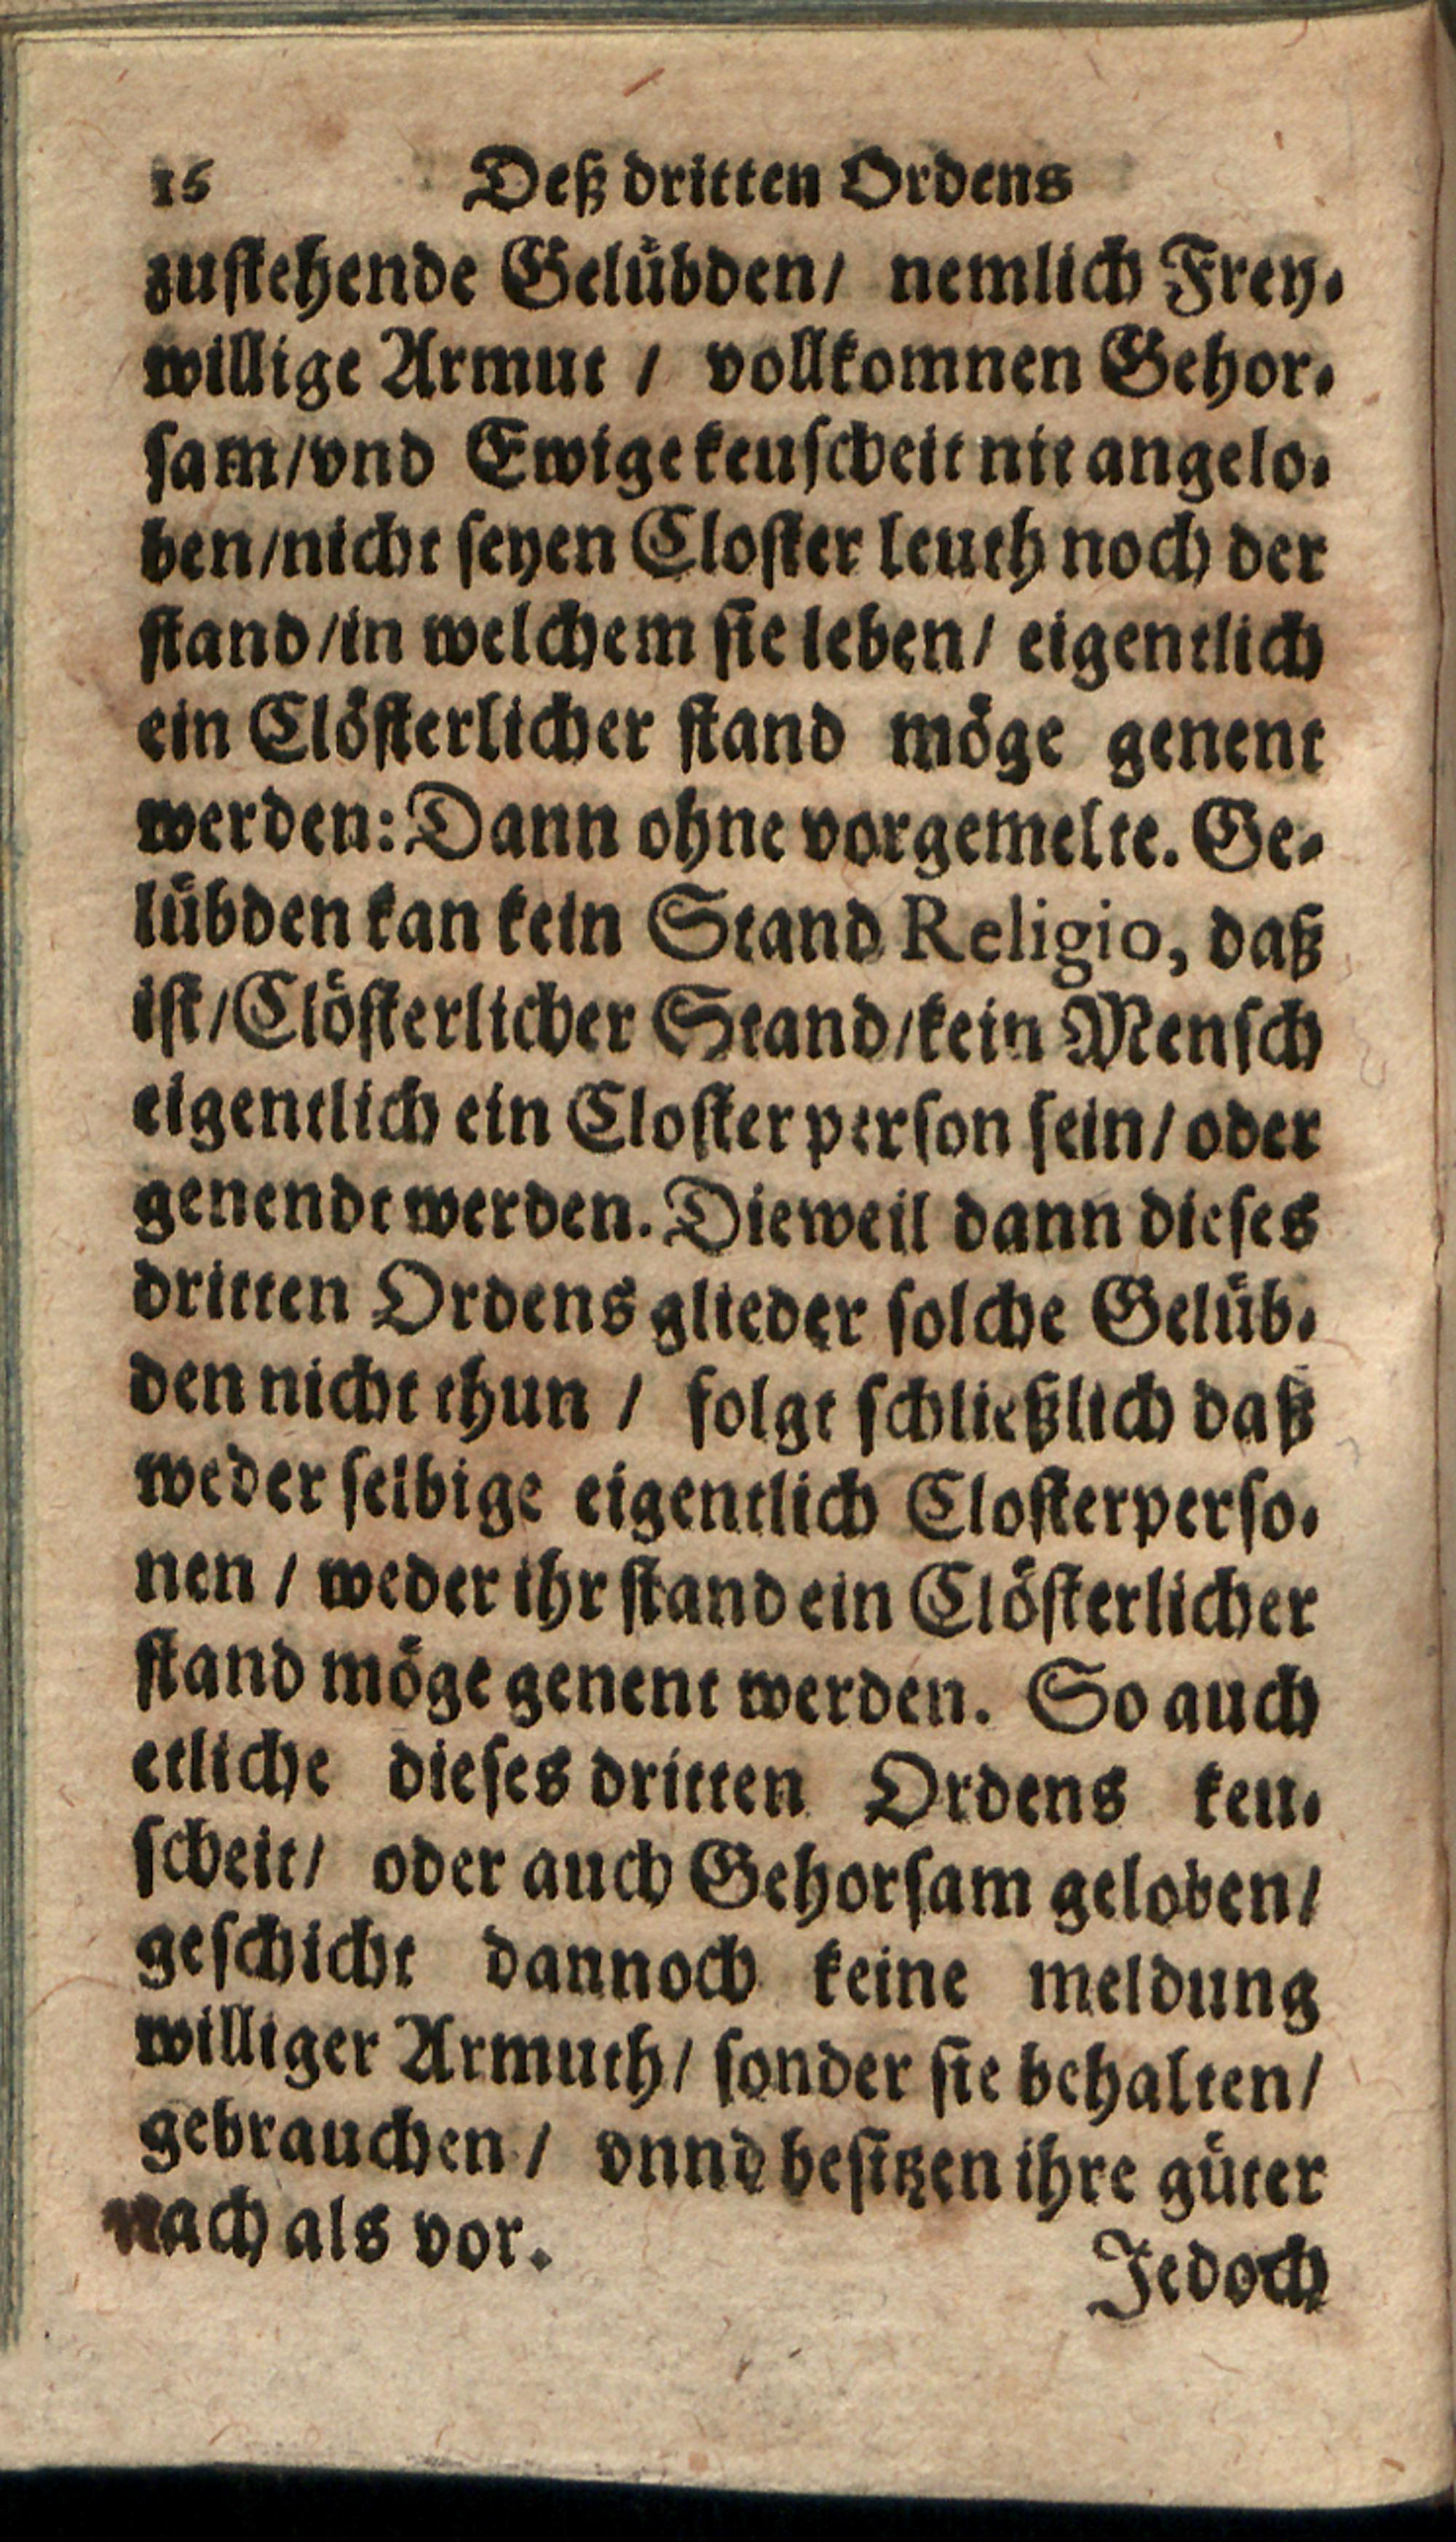 16 Deß dritten Ordens
zustehende Gelübden/ nemlich Frey-
willige Armut / vollkomnen Gehor-
sam/vnd Ewige keuscheit nit angelo-
ben/nicht seyen Closter leuth noch der
stand/in welchem sie leben/ eigentlich
ein Clösterlicher stand möge genent
werden: Dann ohne vorgemelte. Ge-
lübden kan kein Stand Religio, daß
ist/Clösterlicher Stand/kein Mensch
eigentlich ein Closter person sein/ oder
genendt werden. Dieweil dann dieses
dritten Ordens glieder solche Gelüb-
den nicht thun / folgt schließlich daß
weder selbige eigentlich Closterperso-
nen / weder ihr stand ein Clösterlicher
stand möge genent werden. So auch
etliche dieses dritten Ordens keu-
scheit/ oder auch Gehorsam geloben/
geschicht dannoch keine meldung
williger Armuth/ sonder sie behalten/
gebrauchen / vnnd besitzen ihre güter
nach als vor.
Jedoch